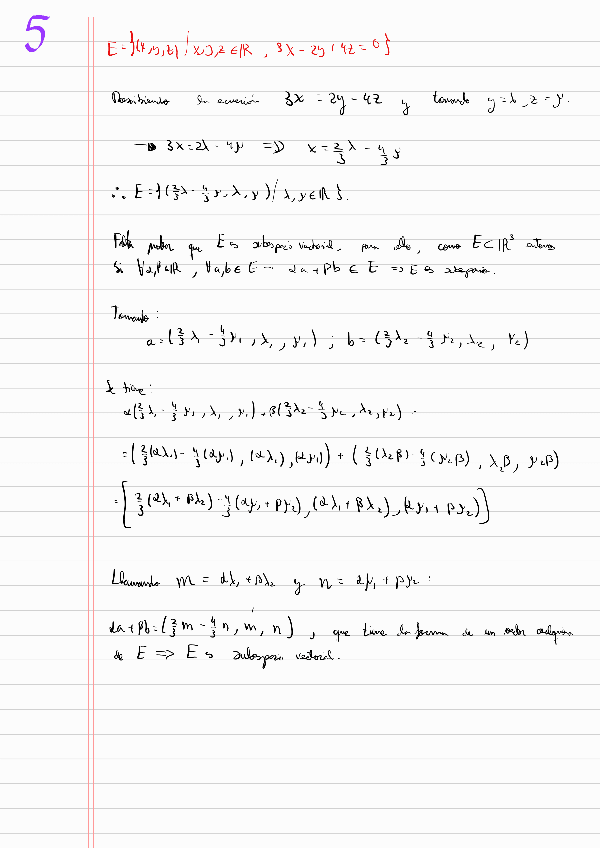 5
E = {(x,y,z) / x,y,z ∈ ℝ , 3x - 2y + 4z = 0}
Reescribiendo la ecuación 3x = 2y - 4z y tomando y = λ, z = μ.
→ 3x = 2λ - 4μ ⇒ x = 2/3 λ - 4/3 μ
∴ E = {(2/3 λ - 4/3 μ, λ, μ) / λ, μ ∈ ℝ}.
probar que E es subespacio vectorial, para ello, como E ⊂ ℝ³ entonces
Si ∀α,β ∈ ℝ, ∀a,b ∈ E → αa + βb ∈ E ⇒ E es subespacio.
Tomando:
a = (2/3 λ - 4/3 μ₁, λ₁, μ₁) ; b = (2/3 λ₂ - 4/3 μ₂, λ₂, μ₂)
Se tiene:
α(2/3 λ₁ - 4/3 μ₁, λ₁, μ₁) + β(2/3 λ₂ - 4/3 μ₂, λ₂, μ₂) =
= (2/3 (αλ₁) - 4/3 (αμ₁), (αλ₁), (αμ₁)) + (2/3 (λ₂β) - 4/3 (μ₂β), λ₂β, μ₂β)
= [2/3 (αλ₁ + βλ₂) - 4/3 (αμ₁ + βμ₂), (αλ₁ + βλ₂), (αμ₁ + βμ₂)]
Llamando m = αλ₁ + βλ₂ y n = αμ₁ + βμ₂ :
αa + βb = (2/3 m - 4/3 n, m, n) , que tiene la forma de un vector cualquiera
de E ⇒ E es subespacio vectorial.